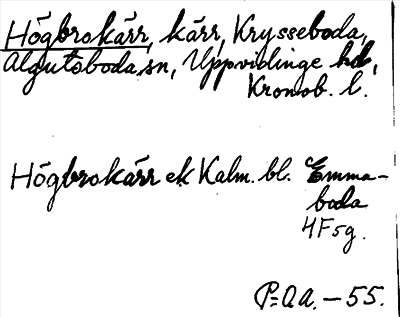 Högbrokärr, kärr, Krysseboda,
Algutsboda sn, Uppvidinge hd,
Kronob. l.
Högbrokärr ek Kalm. bl. Emma-
boda
4F5g.
P-O A. - 55.